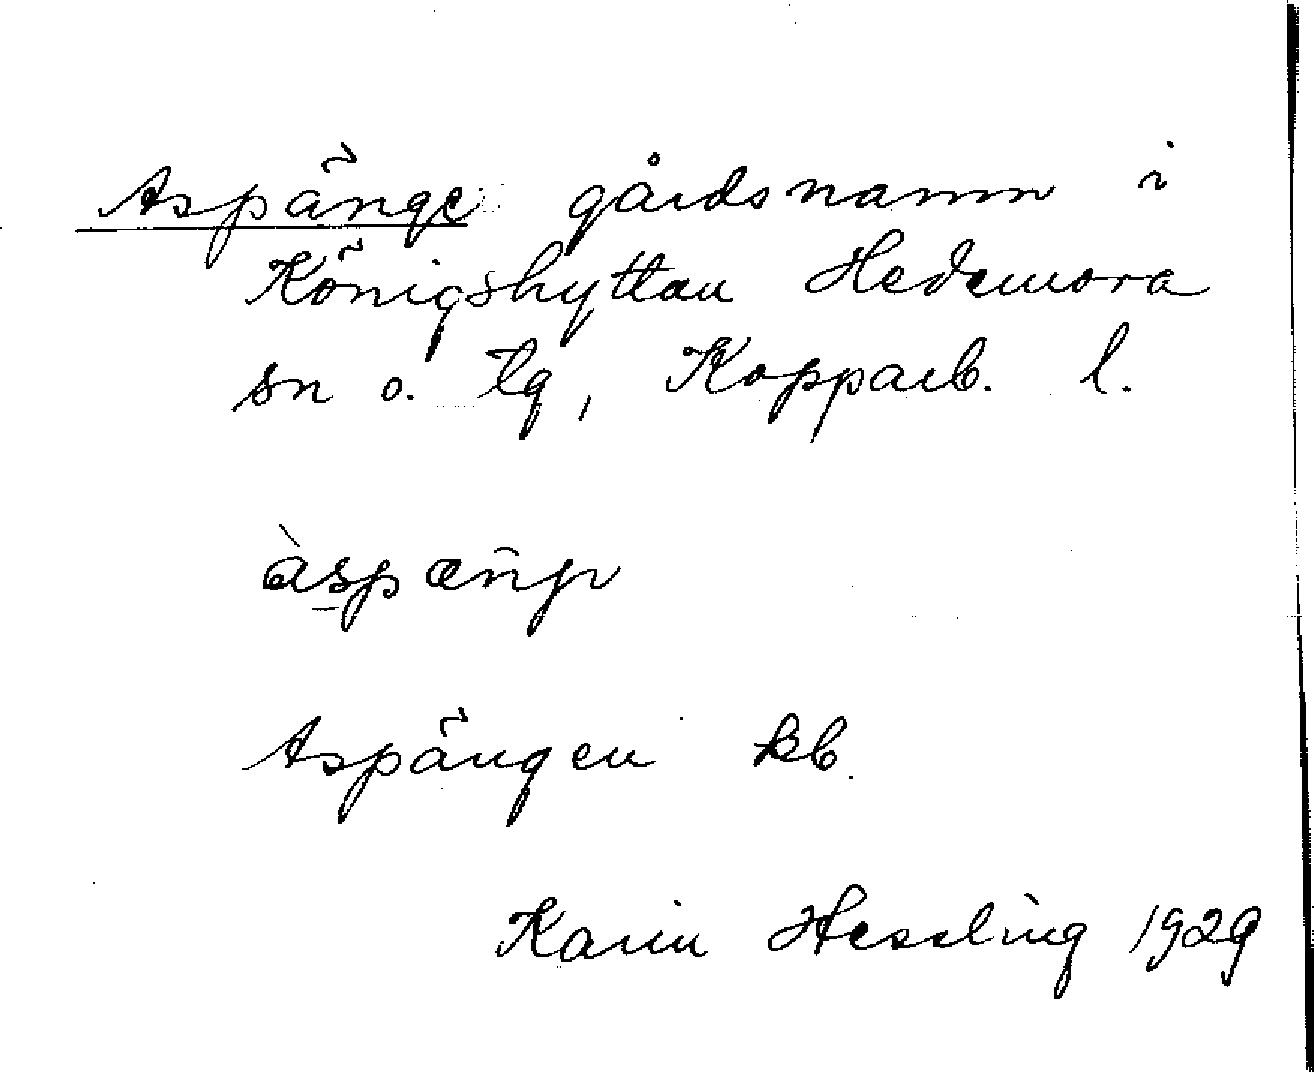 Aspänge gårdsnamn i
Königshyttan Hedemora
sn o. tg, Kopparb. l.
Aspängen kb.
Karin Hessling 1929